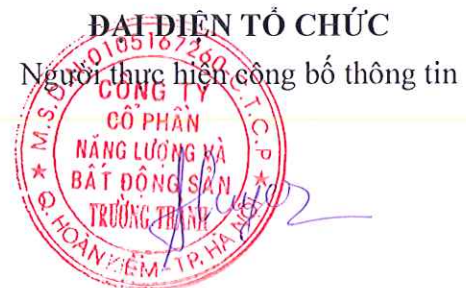 ĐẠI DIỆN TỔ CHỨC
Người thực hiện công bố thông tin
M.S.D.N: 0105167260-C.T.C.P
CÔNG TY
CỔ PHẦN
NĂNG LƯỢNG VÀ
BẤT ĐỘNG SẢN
TRƯỜNG THÀNH
Q. HOÀN KIẾM - TP. HÀ NỘI